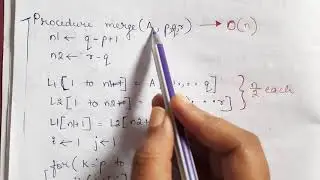 Procedure merge(A, p,q,r) → O(n)
n1 ← q-p+1
n2 ← r-q
L1[1 to n1+1] = A[p...q]
L2[1 to n2+1] = A[...r] } n/2 each
L1[n1+1] = L2[n2+
i ← 1 j ← 1
for(K=p to